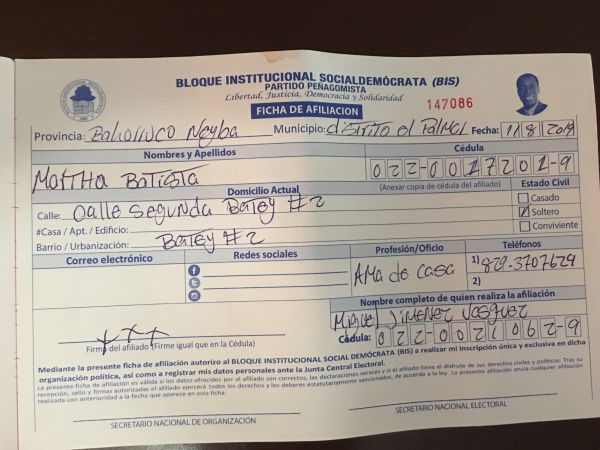 BLOQUE INSTITUCIONAL SOCIALDEMÓCRATA (BIS)
PARTIDO PEÑAGOMISTA
Libertad, Justicia, Democracia y Solidaridad
FICHA DE AFILIACION
147086
Provincia: Bahoruco Neyba Municipio: distrito el Palmal Fecha: 11/8/2019
Nombres y Apellidos Cédula
Martha Batista 022-0017201-9
Domicilio Actual (Anexar copia de cédula del afiliado) Estado Civil
Calle: calle segunda Batey #2 Casado
#Casa / Apt. / Edificio: Soltero
Barrio / Urbanización: Batey #2 Conviviente
Correo electrónico Redes sociales Profesión/Oficio Teléfonos
Ama de casa 1) 829-3707629
2)
Nombre completo de quien realiza la afiliación
Miguel Jimenez Vasquez
Cédula: 022-0029062-9
Firma del afiliado (Firme igual que en la Cédula)
Mediante la presente ficha de afiliación autorizo al BLOQUE INSTITUCIONAL SOCIALDEMÓCRATA (BIS) a realizar mi inscripción única y exclusiva en dicha
organización política, así como a registrar mis datos personales ante la Junta Central Electoral.
La presente ficha de afiliación es válida si los datos ofrecidos por el afiliado son correctos, las declaraciones veraces y si el afiliado tiene el disfrute de sus derechos civiles y políticos. Tras su
recepción, sello y firmas autorizadas el afiliado ejercerá todos los derechos y los deberes estatutariamente sancionados, de acuerdo a la ley. La presente afiliación anula cualquier afiliación
realizada con anterioridad a la fecha que aparece en esta ficha.
SECRETARIO NACIONAL DE ORGANIZACIÓN SECRETARIO NACIONAL ELECTORAL